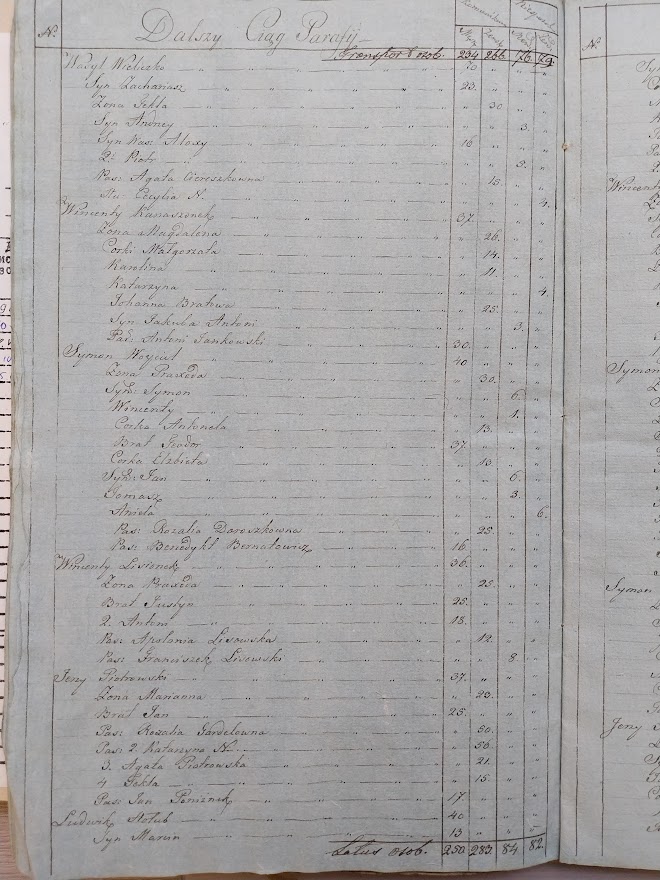 № Dalszy Ciąg Parafij
Transport osob. 234 266 76 79
Wasyl Wieliczko 70
Syn Zachariasz 23.
Zona Tekla 30
Syn Andrzey 3.
Syn Was: Aloxy 16
2: Piotr 3.
Pas: Agata Ciereszkowna 13.
Cecylia N. 4.
Wincenty Kanaszonek 37.
Zona Magdalena 26.
Corki Małgorzata 14.
Karolina 11.
Katarzyna 4.
Johanna Bratowa 25.
Syn Jakuba Antoni 3.
Pas: Antoni Jankowski 30.
Symon Woyciul 40
Zona Praxeda 30.
Syn: Symon 6.
Wincenty 1.
Corka Antonela 13.
Brat Teodor 37.
Corka Elzbieta 13.
Syn: Jan 6.
Tomasz 3.
Aniela 6.
Pas: Rozalia Doroszkowna 25.
Pas: Benedykt Bernatowicz 16.
Wincenty Lisionek 36.
Zona Praxeda 25.
Brat Justyn 25.
2. Antoni 18.
Pas: Apolonia Lisowska 12.
Pas: Franciszek Lisowski 8.
Jerzy Piotrowski 37.
Zona Marianna 23.
Brat Jan 25.
Pas: Rozalia Gardelowna 50.
Pas: 2. Katarzyna N. 50.
3. Agata Piotrowska 21.
4 Tekla 15.
Pas: Jan 17.
Ludwik Stolub 40
Syn Marcin 13
Latus osob. 250. 283 84 82.
№
Wincenty
Symon
Symon
Jerzy